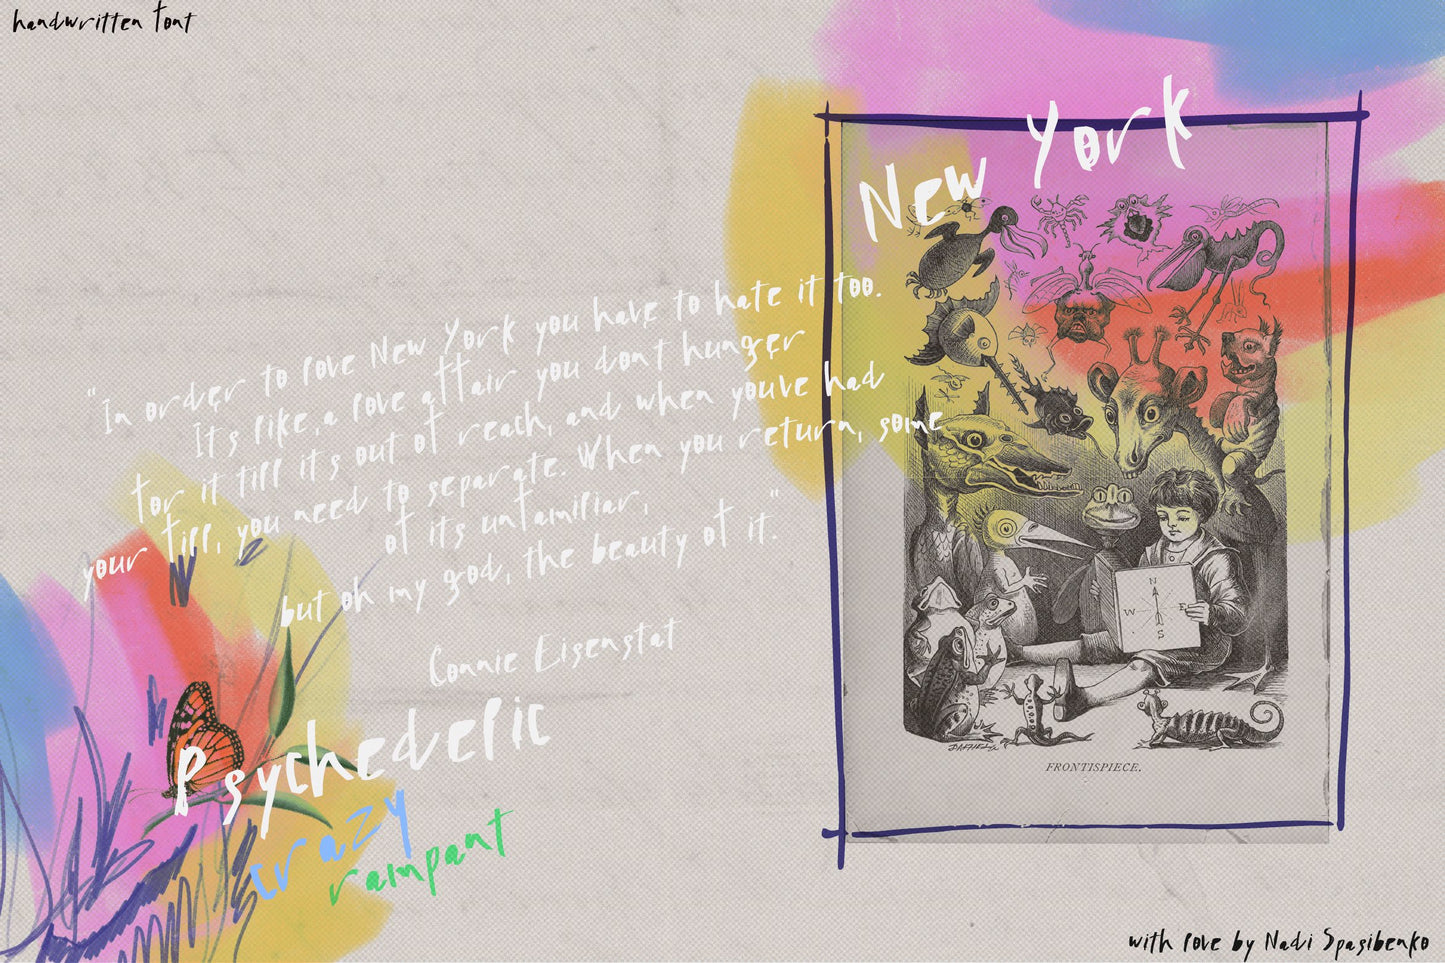 handwritten font
New York
"In order to love New York you have to hate it too.
It's like a love affair you don't hunger
for it till it's out of reach, and when you've had
your fill, you need to separate. When you return, some
of it's unfamiliar,
but oh my god, the beauty of it."
Connie Eisenstat
Psychedelic
crazy
rampant
N
W E
S
FRONTISPIECE.
with love by Nadi Spasibenko